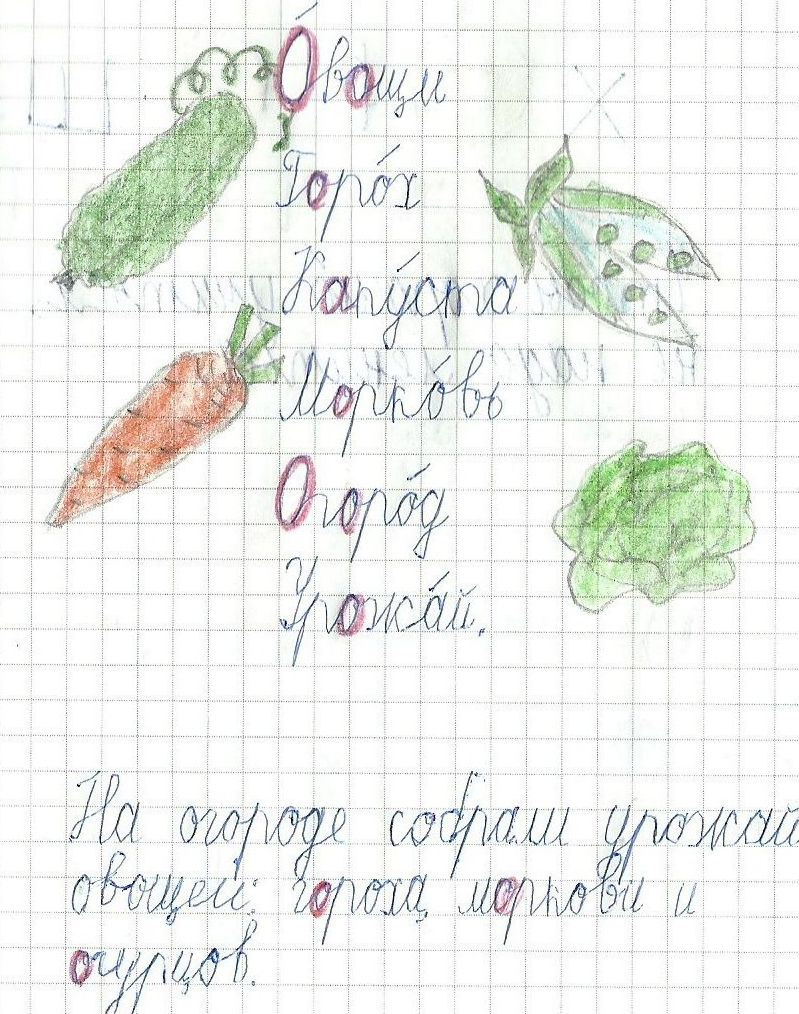 О́вощи
Горо́х
Капу́ста
Морко́вь
Огоро́д
Урожа́й.
На огороде собрали урожай
овощей: гороха, моркови и
огурцов.